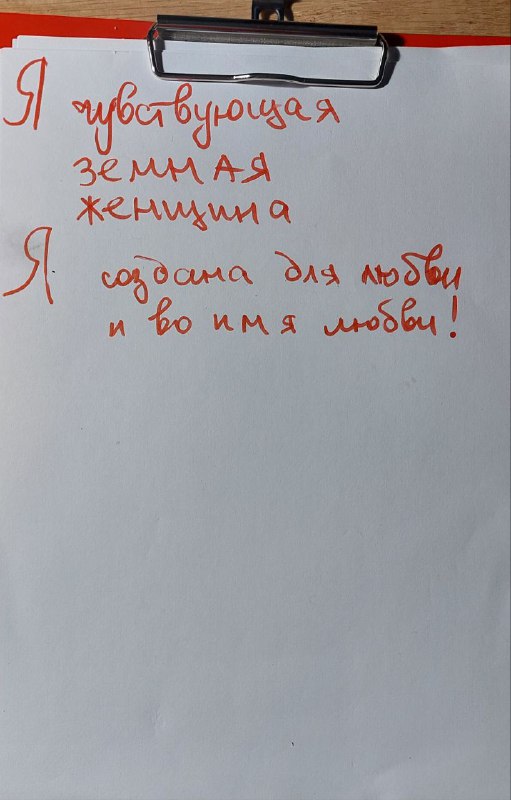 Я чувствующая
земная
женщина
Я создана для любви
и во имя любви!